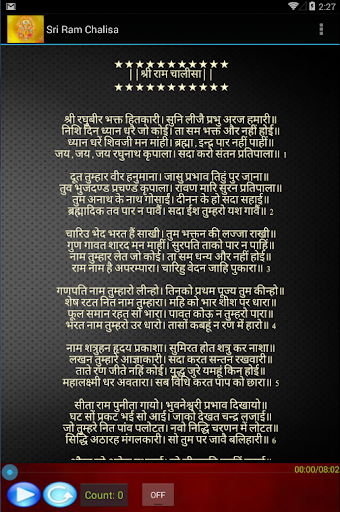 2:27
Sri Ram Chalisa
★★★★★★★★★★★
||श्री राम चालीसा||
★★★★★★★★★★★
श्री रघुबीर भक्त हितकारी। सुनि लीजै प्रभु अरज हमारी॥
निशि दिन ध्यान धरै जो कोई। ता सम भक्त और नहीं होई॥
ध्यान धरें शिवजी मन मांही। ब्रह्मा, इन्द्र पार नहीं पाहीं॥
जय, जय, जय रघुनाथ कृपाला। सदा करो संतन प्रतिपाला॥ 1
दूत तुम्हार वीर हनुमाना। जासु प्रभाव तिहुं पुर जाना॥
तुव भुजदण्ड प्रचण्ड कृपाला। रावण मारि सुरन प्रतिपाला॥
तुम अनाथ के नाथ गोसाईं। दीनन के हो सदा सहाई॥
ब्रह्मादिक तव पार न पावैं। सदा ईश तुम्हरो यश गावैं॥ 2
चारिउ भेद भरत हैं साखी। तुम भक्तन की लज्जा राखी॥
गुण गावत शारद मन माहीं। सुरपति ताको पार न पाहिं॥
नाम तुम्हार लेत जो कोई। ता सम धन्य और नहीं होई॥
राम नाम है अपरम्पारा। चारिहु वेदन जाहि पुकारा॥ 3
गणपति नाम तुम्हारो लीन्हो। तिनको प्रथम पूज्य तुम कीन्हो॥
शेष रटत नित नाम तुम्हारा। महि को भार शीश पर धारा॥
फूल समान रहत सो भारा। पावत कोऊ न तुम्हरो पारा॥
भरत नाम तुम्हरो उर धारो। तासों कबहूं न रण में हारो॥ 4
नाम शत्रुहन हृदय प्रकाशा। सुमिरत होत शत्रु कर नाशा॥
लखन तुम्हारे आज्ञाकारी। सदा करत सन्तन रखवारी॥
ताते रण जीते नहिं कोई। युद्ध जुरे यमहूं किन होई॥
महालक्ष्मी धर अवतारा। सब विधि करत पाप को छारा॥ 5
सीता राम पुनीता गायो। भुवनेश्वरी प्रभाव दिखायो॥
घट सों प्रकट भई सो आई। जाको देखत चन्द्र लजाई॥
जो तुम्हरे नित पांव पलोटत। नवो निद्धि चरणन में लोटत॥
सिद्धि अठारह मंगलकारी। सो तुम पर जावै बलिहारी॥ 6
00:00/08:02
Count: 0
OFF